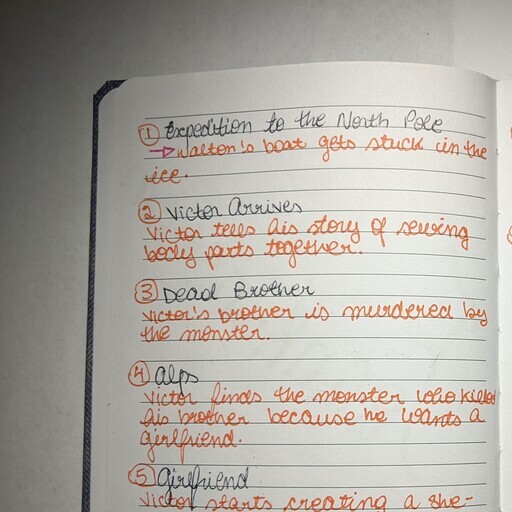 1 Expedition to the North Pole
→ Walton's boat gets stuck in the
ice.
2 Victor Arrives
Victor tells his story of sewing
body parts together.
3 Dead Brother
Victor's brother is murdered by
the monster.
4 Alps
Victor finds the monster who killed
his brother because he wants a
girlfriend.
5 Girlfriend
Victor starts creating a she-